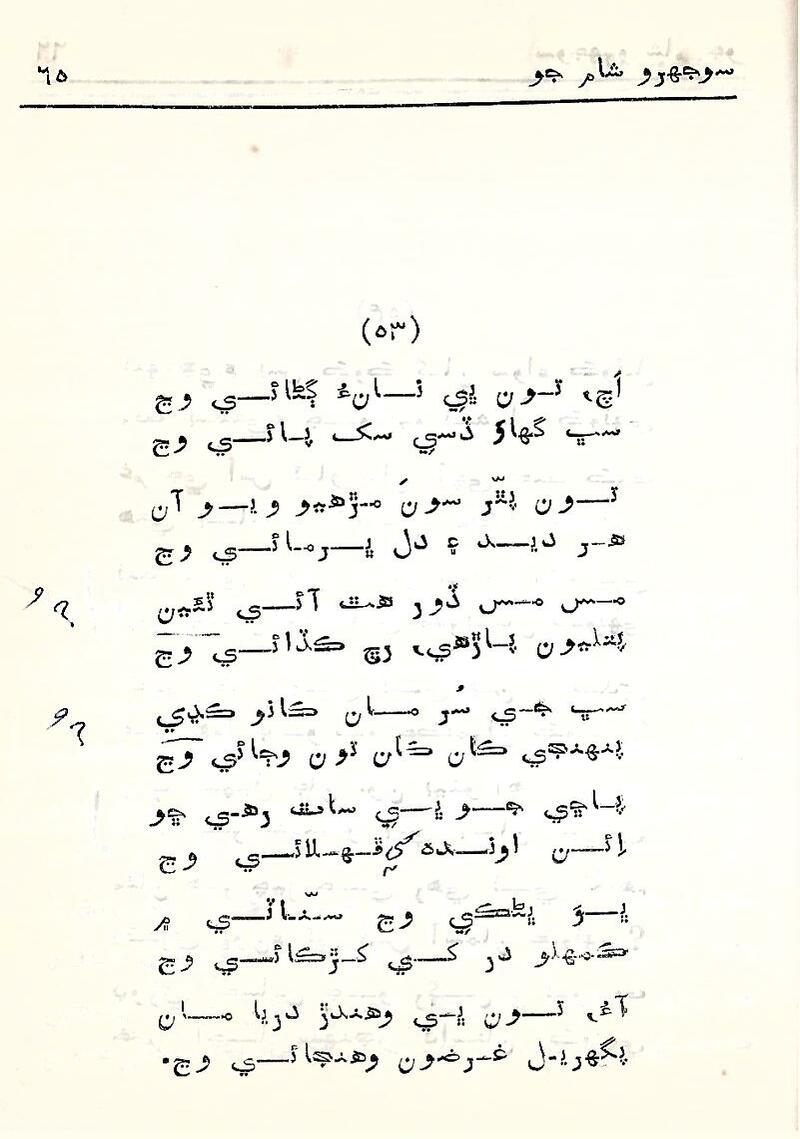 سوجهرو شام جو
٦٥
(٥٣)
اَچ، تون ڀي نانءُ ڳڻائي وڃ
سڀ گهاوَ ڏسي سڪ پائي وڃ
تون پٿّر سونَ مڙهيو ويو آن
هر ديد ۽ دل ڀرمائي وڃ
مس مس ڏور هٿ آئي ٿئين
پتليون پاڙهي، رڇ ڪڏائي وڃ
سڀ جي سُر مان ڪانو ڪڍي
پنهنجي ڪان ڪان تون وڄائي وڃ
پاڇي جو ڀي ساٿ رهي ڇو
اِئن اونده کي ڦهلائي وڃ
ڀوَ ڀڻڪي وڃ سنّاٽي ۾
ڪمهلو در کي کڙڪائي وڃ
آءُ، تون ڀي وهندڙ دريا مان
پگهريل غرضون وهنجائي وڃ.